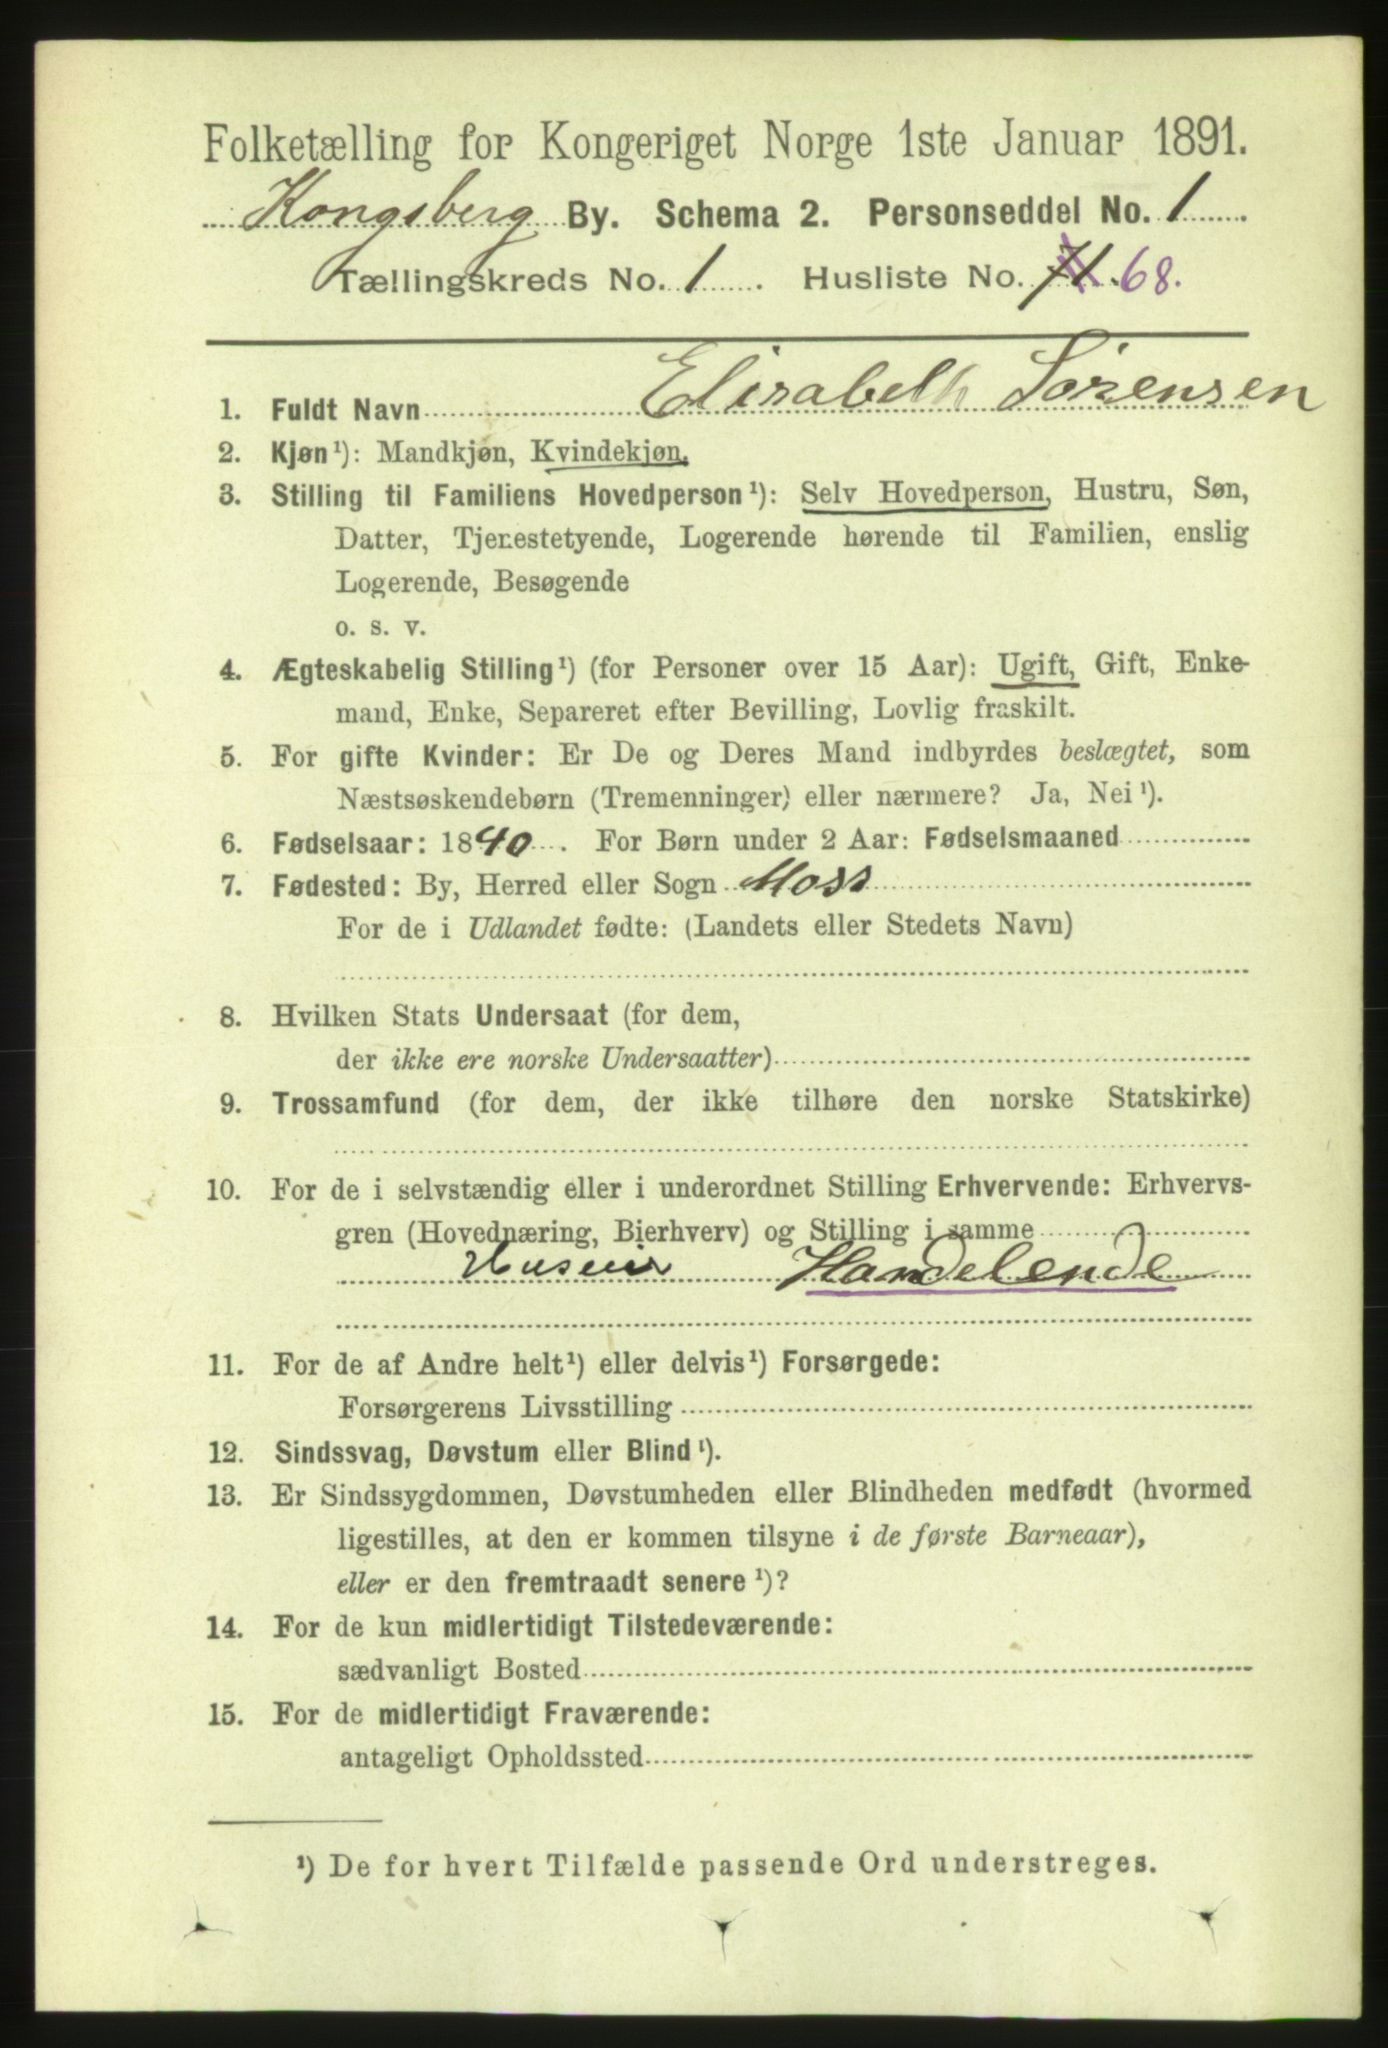 Folketælling for Kongeriget Norge 1ste Januar 1891.
Kongsberg By. Schema 2. Personseddel No. 1
Tællingskreds No. 1. Husliste No. 71. 68.
1. Fuldt Navn Elisabeth Sörensen
2. Kjøn¹): Mandkjøn, Kvindekjøn.
3. Stilling til Familiens Hovedperson¹): Selv Hovedperson, Hustru, Søn,
Datter, Tjenestetyende, Logerende hørende til Familien, enslig
Logerende, Besøgende
o. s. v.
4. Ægteskabelig Stilling¹) (for Personer over 15 Aar): Ugift, Gift, Enke-
mand, Enke, Separeret efter Bevilling, Lovlig fraskilt.
5. For gifte Kvinder: Er De og Deres Mand indbyrdes beslægtet, som
Næstsøskendebørn (Tremenninger) eller nærmere? Ja, Nei¹).
6. Fødselsaar: 1840. For Børn under 2 Aar: Fødselsmaaned
7. Fødested: By, Herred eller Sogn Moss
For de i Udlandet fødte: (Landets eller Stedets Navn)
8. Hvilken Stats Undersaat (for dem,
der ikke ere norske Undersaatter)
9. Trossamfund (for dem, der ikke tilhøre den norske Statskirke)
10. For de i selvstændig eller i underordnet Stilling Erhvervende: Erhvervs-
gren (Hovednæring, Bierhverv) og Stilling i samme
Huseier Handelende
11. For de af Andre helt¹) eller delvis¹) Forsørgede:
Forsørgerens Livsstilling
12. Sindssvag, Døvstum eller Blind¹).
13. Er Sindssygdommen, Døvstumheden eller Blindheden medfødt (hvormed
ligestilles, at den er kommen tilsyne i de første Barneaar),
eller er den fremtraadt senere¹)?
14. For de kun midlertidigt Tilstedeværende:
sædvanligt Bosted
15. For de midlertidigt Fraværende:
antageligt Opholdssted
¹) De for hvert Tilfælde passende Ord understreges.